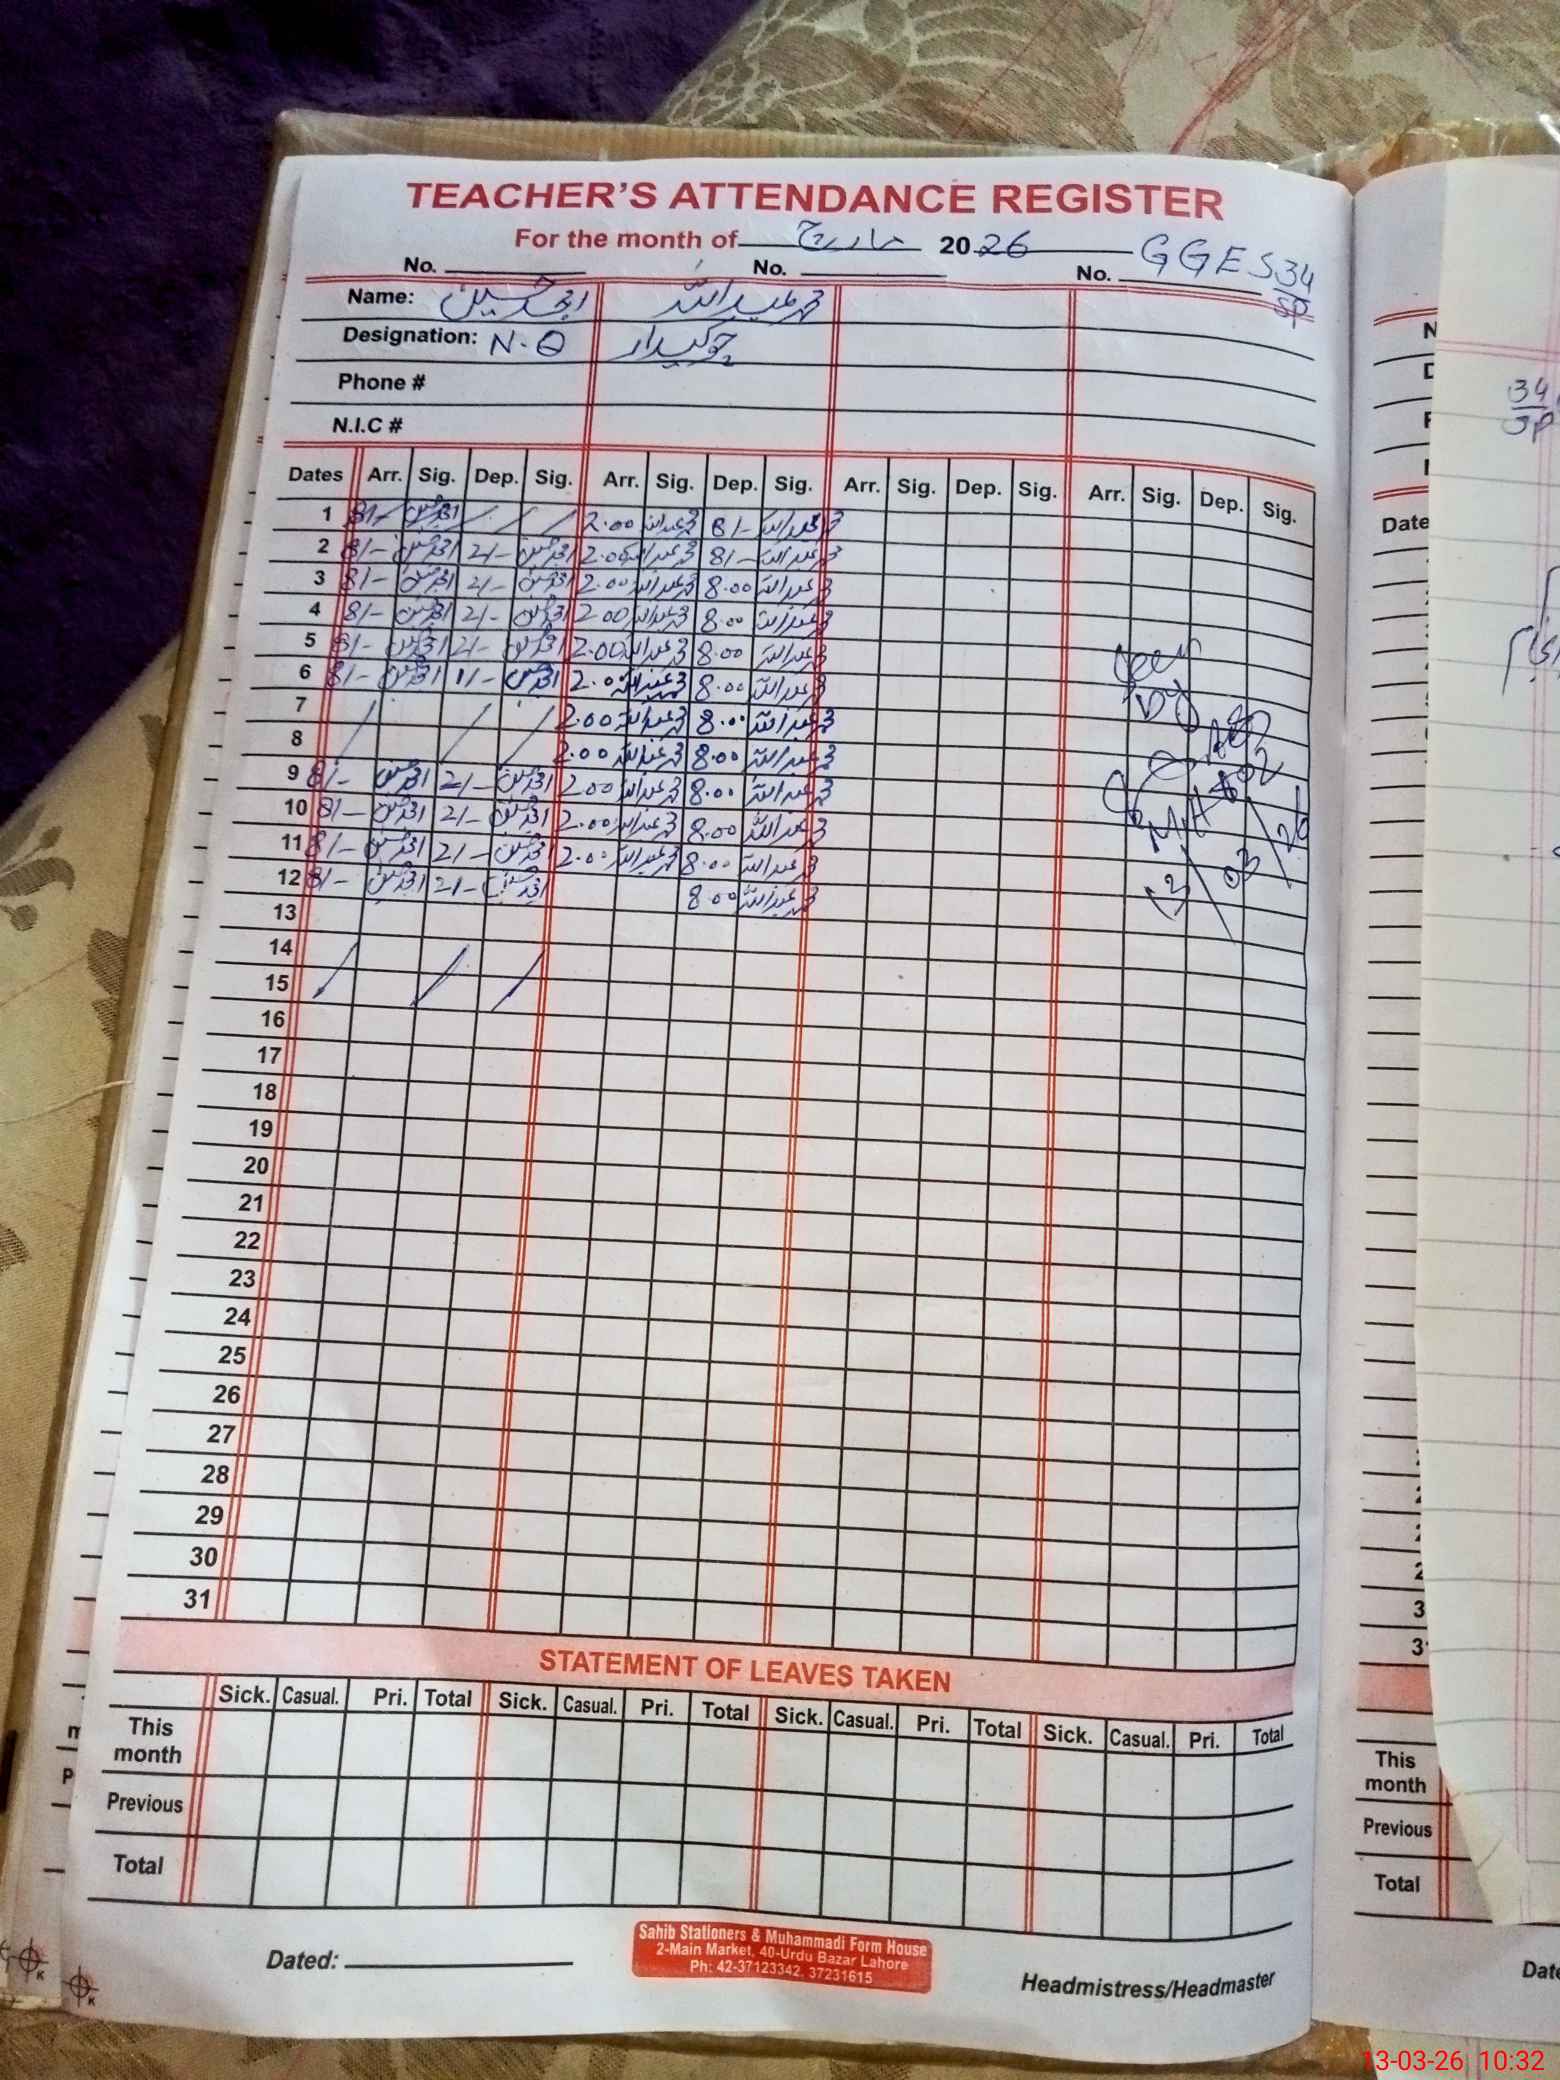 TEACHER'S ATTENDANCE REGISTER
For the month of مارچ 2026 GGES 34/SP
No. No. No.
Name: امجد حسین محمد عبداللہ
Designation: N.Q چوکیدار
Phone #
N.I.C #
Dates Arr. Sig. Dep. Sig. Arr. Sig. Dep. Sig. Arr. Sig. Dep. Sig. Arr. Sig. Dep. Sig.
1 8/- 2.00 محمد عبداللہ 8/- محمد عبداللہ
2 8/- 2/- 2.00 محمد عبداللہ 8/- محمد عبداللہ
3 8/- 2/- 2.00 محمد عبداللہ 8.00 محمد عبداللہ
4 8/- 2/- 2.00 محمد عبداللہ 8.00 محمد عبداللہ
5 8/- 2/- 2.00 محمد عبداللہ 8.00 محمد عبداللہ
6 8/- 1/- 2.00 محمد عبداللہ 8.00 محمد عبداللہ
7 2.00 محمد عبداللہ 8.00 محمد عبداللہ
8 2.00 محمد عبداللہ 8.00 محمد عبداللہ
9 8/- 2/- 2.00 محمد عبداللہ 8.00 محمد عبداللہ
10 8/- 2/- 2.00 محمد عبداللہ 8.00 محمد عبداللہ
11 8/- 2/- 2.00 محمد عبداللہ 8.00 محمد عبداللہ
12 8/- 2/- 8.00 محمد عبداللہ
13
14
15
16
17
18
19
20
21
22
23
24
25
26
27
28
29
30
31
STATEMENT OF LEAVES TAKEN
Sick. Casual. Pri. Total Sick. Casual. Pri. Total Sick. Casual. Pri. Total Sick. Casual. Pri. Total
This month
Previous
Total
Dated:
Sahib Stationers & Muhammadi Form House
2-Main Market, 40-Urdu Bazar Lahore
Ph: 42-37123342, 37231615
Headmistress/Headmaster
34/SP
Date
This month
Previous
Total
13-03-26 10:32